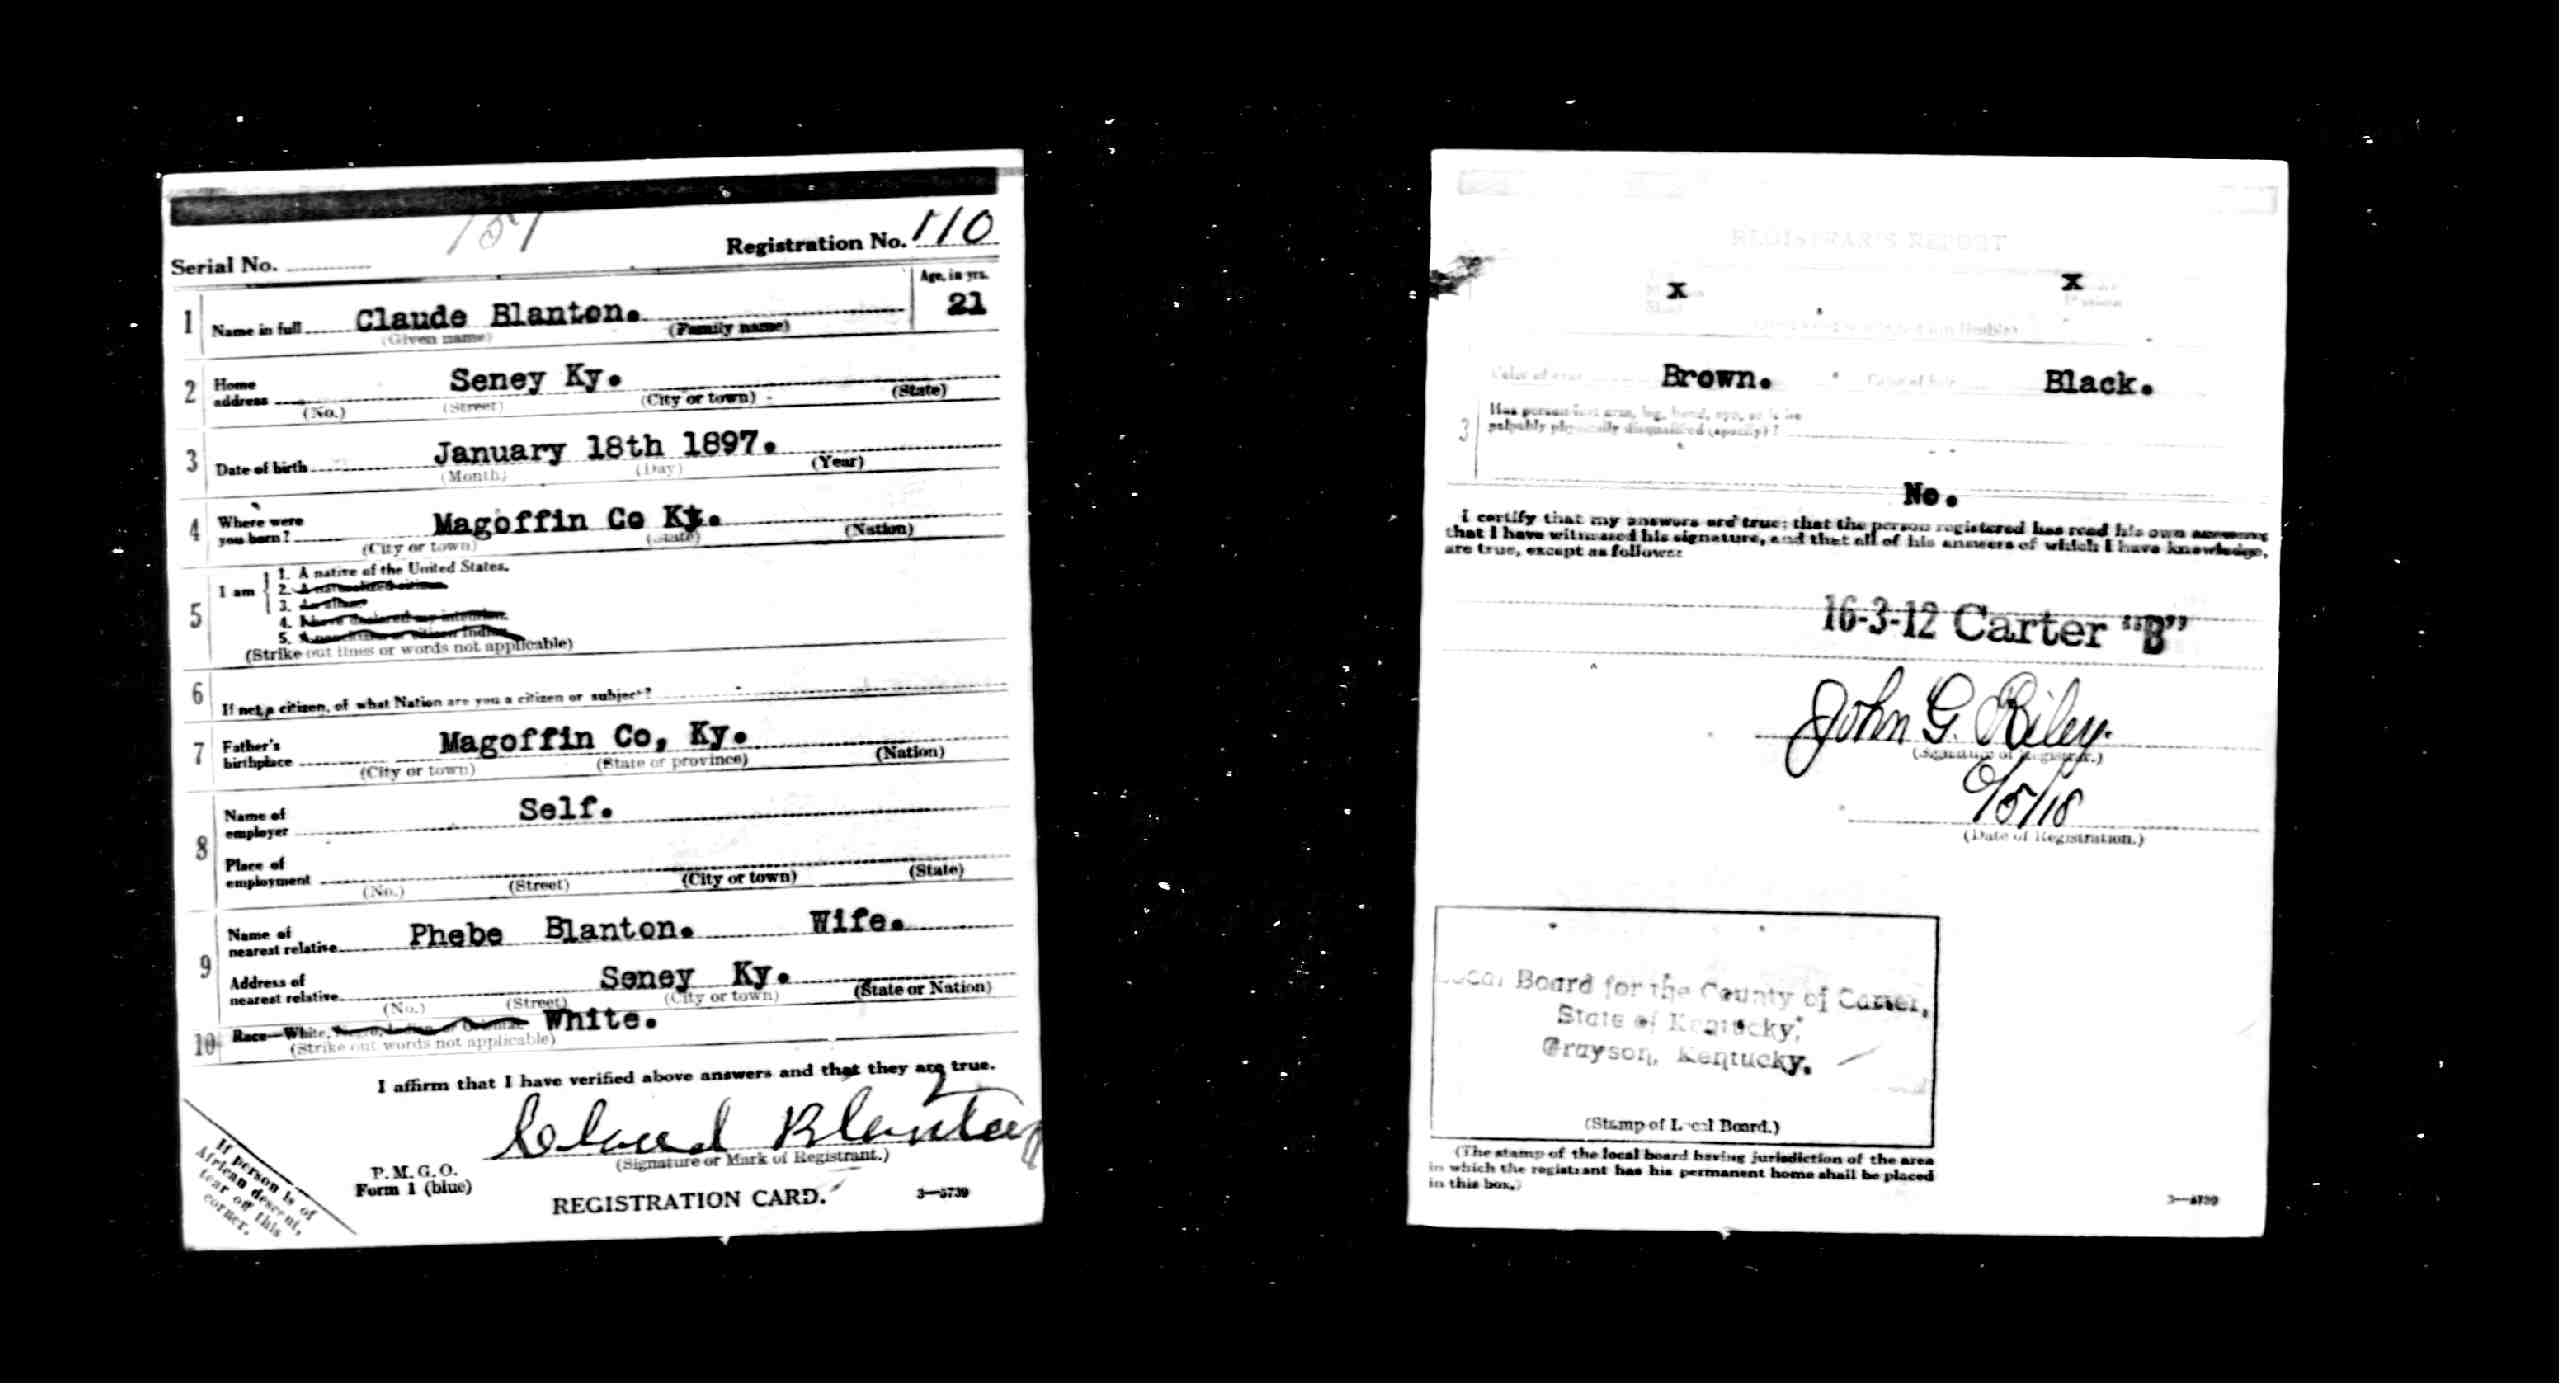 Serial No.
Registration No. 110
Age, in yrs.
21
1 Name in full Claude Blanton.
(Given name) (Family name)
2 Home address Seney Ky.
(No.) (Street) (City or town) (State)
3 Date of birth January 18th 1897.
(Month) (Day) (Year)
4 Where were you born? Magoffin Co Ky.
(City or town) (State) (Nation)
5 I am
1. A native of the United States.
2. A naturalized citizen.
3. An alien.
4. I have declared my intention.
5. A noncitizen or citizen Indian.
(Strike out lines or words not applicable)
6 If not a citizen, of what Nation are you a citizen or subject?
7 Father's birthplace Magoffin Co, Ky.
(City or town) (State or province) (Nation)
8 Name of employer Self.
Place of employment
(No.) (Street) (City or town) (State)
9 Name of nearest relative Phebe Blanton. Wife.
Address of nearest relative Seney Ky.
(No.) (Street) (City or town) (State or Nation)
10 Race—White, Negro, Indian or Oriental White.
(Strike out words not applicable)
I affirm that I have verified above answers and that they are true.
Claud Blanton
(Signature or Mark of Registrant.)
P. M. G. O.
Form 1 (blue)
REGISTRATION CARD. 3—5739
If person is of
African descent,
tear off this
corner.
REGISTRAR'S REPORT
x x
Color of eyes Brown. Color of hair Black.
3 Has person lost arm, leg, hand, eye, or is he
palpably physically disqualified (specify)?
No.
I certify that my answers are true; that the person registered has read his own answers;
that I have witnessed his signature, and that all of his answers of which I have knowledge,
are true, except as follows:
16-3-12 Carter "B"
John G. Riley.
(Signature of Registrar.)
6/5/18
(Date of Registration.)
Local Board for the County of Carter,
State of Kentucky,
Grayson, Kentucky.
(Stamp of Local Board.)
(The stamp of the local board having jurisdiction of the area
in which the registrant has his permanent home shall be placed
in this box.)
3—5739